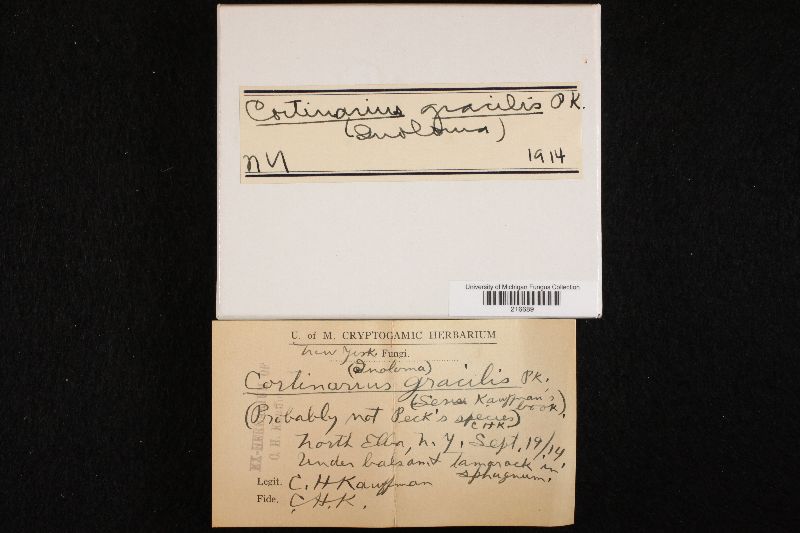 Cortinarius gracilis PK.
(Inoloma)
NY 1914
University of Michigan Fungus Collection
216689
U. of M. CRYPTOGAMIC HERBARIUM
New York Fungi.
(Inoloma)
Cortinarius gracilis PK.
(Sense Kauffman's book)
(Probably not Peck's species)
C.H.K.
North Elba, N.Y. Sept. 19/14
Under balsam & tamarack in sphagnum.
Legit. C. H Kauffman
Fide. C.H.K.
EX-HERB
C. H.